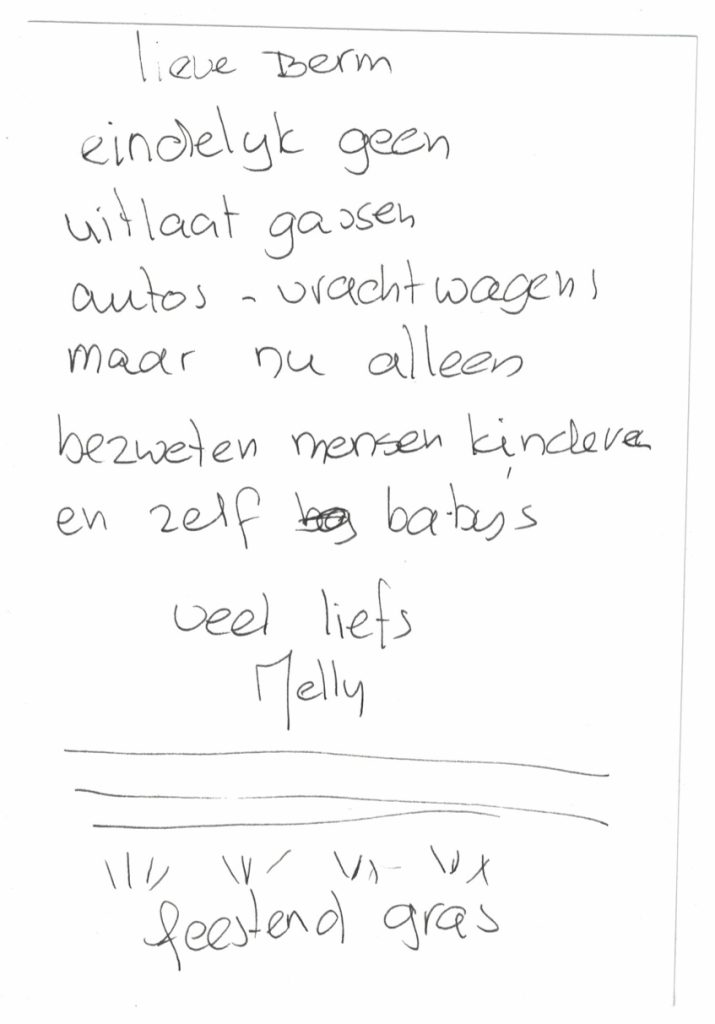 lieve Berm
eindelyk geen
uitlaat gassen
autos - vrachtwagens
maar nu alleen
bezweten mensen kinderen
en zelf baby's
veel liefs
Melly
feestend gras